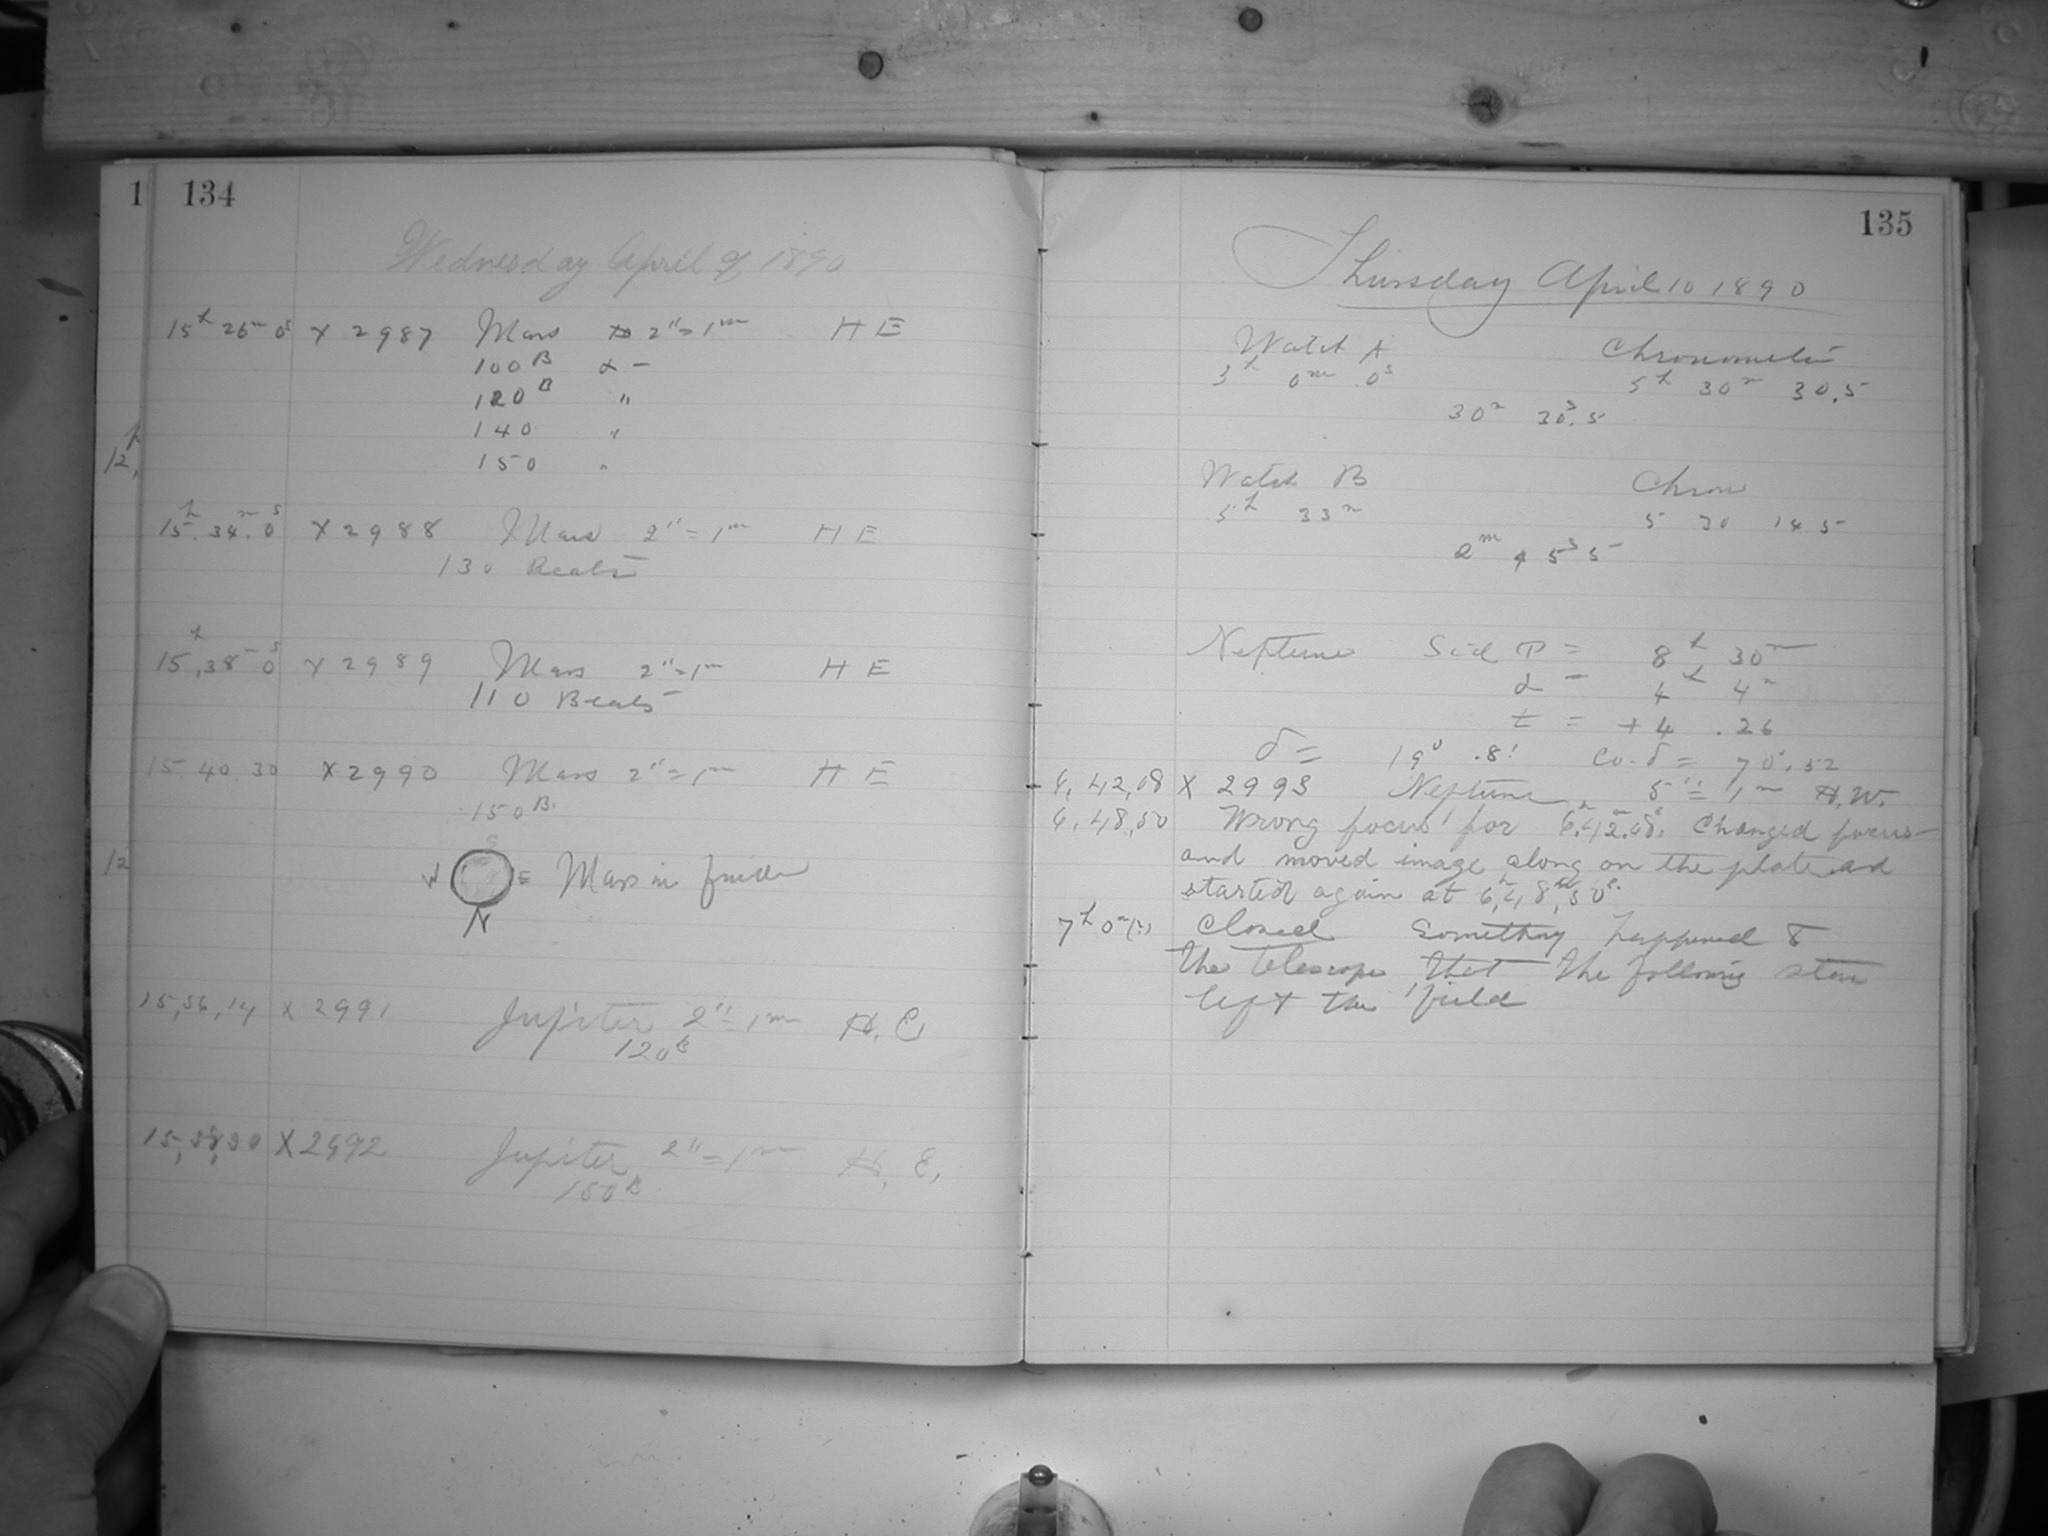 1 134
Wednesday April 9, 1890
15h 26m 0s X 2987 Mars 2" = 1m H E
100 B α -
120 B "
140 "
150 "
12,
15h. 34m. 0s X 2988 Mars 2" = 1m H E
130 Beats
15h, 38m 0s X 2989 Mars 2" = 1m H E
110 Beats
15. 40. 30 X 2990 Mars 2" = 1m H E
150 B.
S
12 W E = Mars in finder
N
15, 56, 14 X 2991 Jupiter 2" = 1m H. E
120 B
X 2992 Jupiter 2" = 1m H. E,
150 B
135
Thursday April 10 1890
Watch A Chronometer
0m 0s 5h 30m 30.5
30m 30s.5
Watch B Chron
5h 33m 5 30 14.5
2m 45s5
Neptune Sid = 8h 30m
α = 4h 4m
t = +4 . 26
δ = 19° .8' co-δ = 70°, 52
6, 42, 08 X 2993 Neptune 5" = 1m H. W.
6, 48, 50 Wrong focus for 6h, 42m, 08s. Changed focus
and moved image along on the plate and
started again at 6h, 48m, 50s.
7h 0m (?) Closed Something happened to
the telescope that the following star
left the field